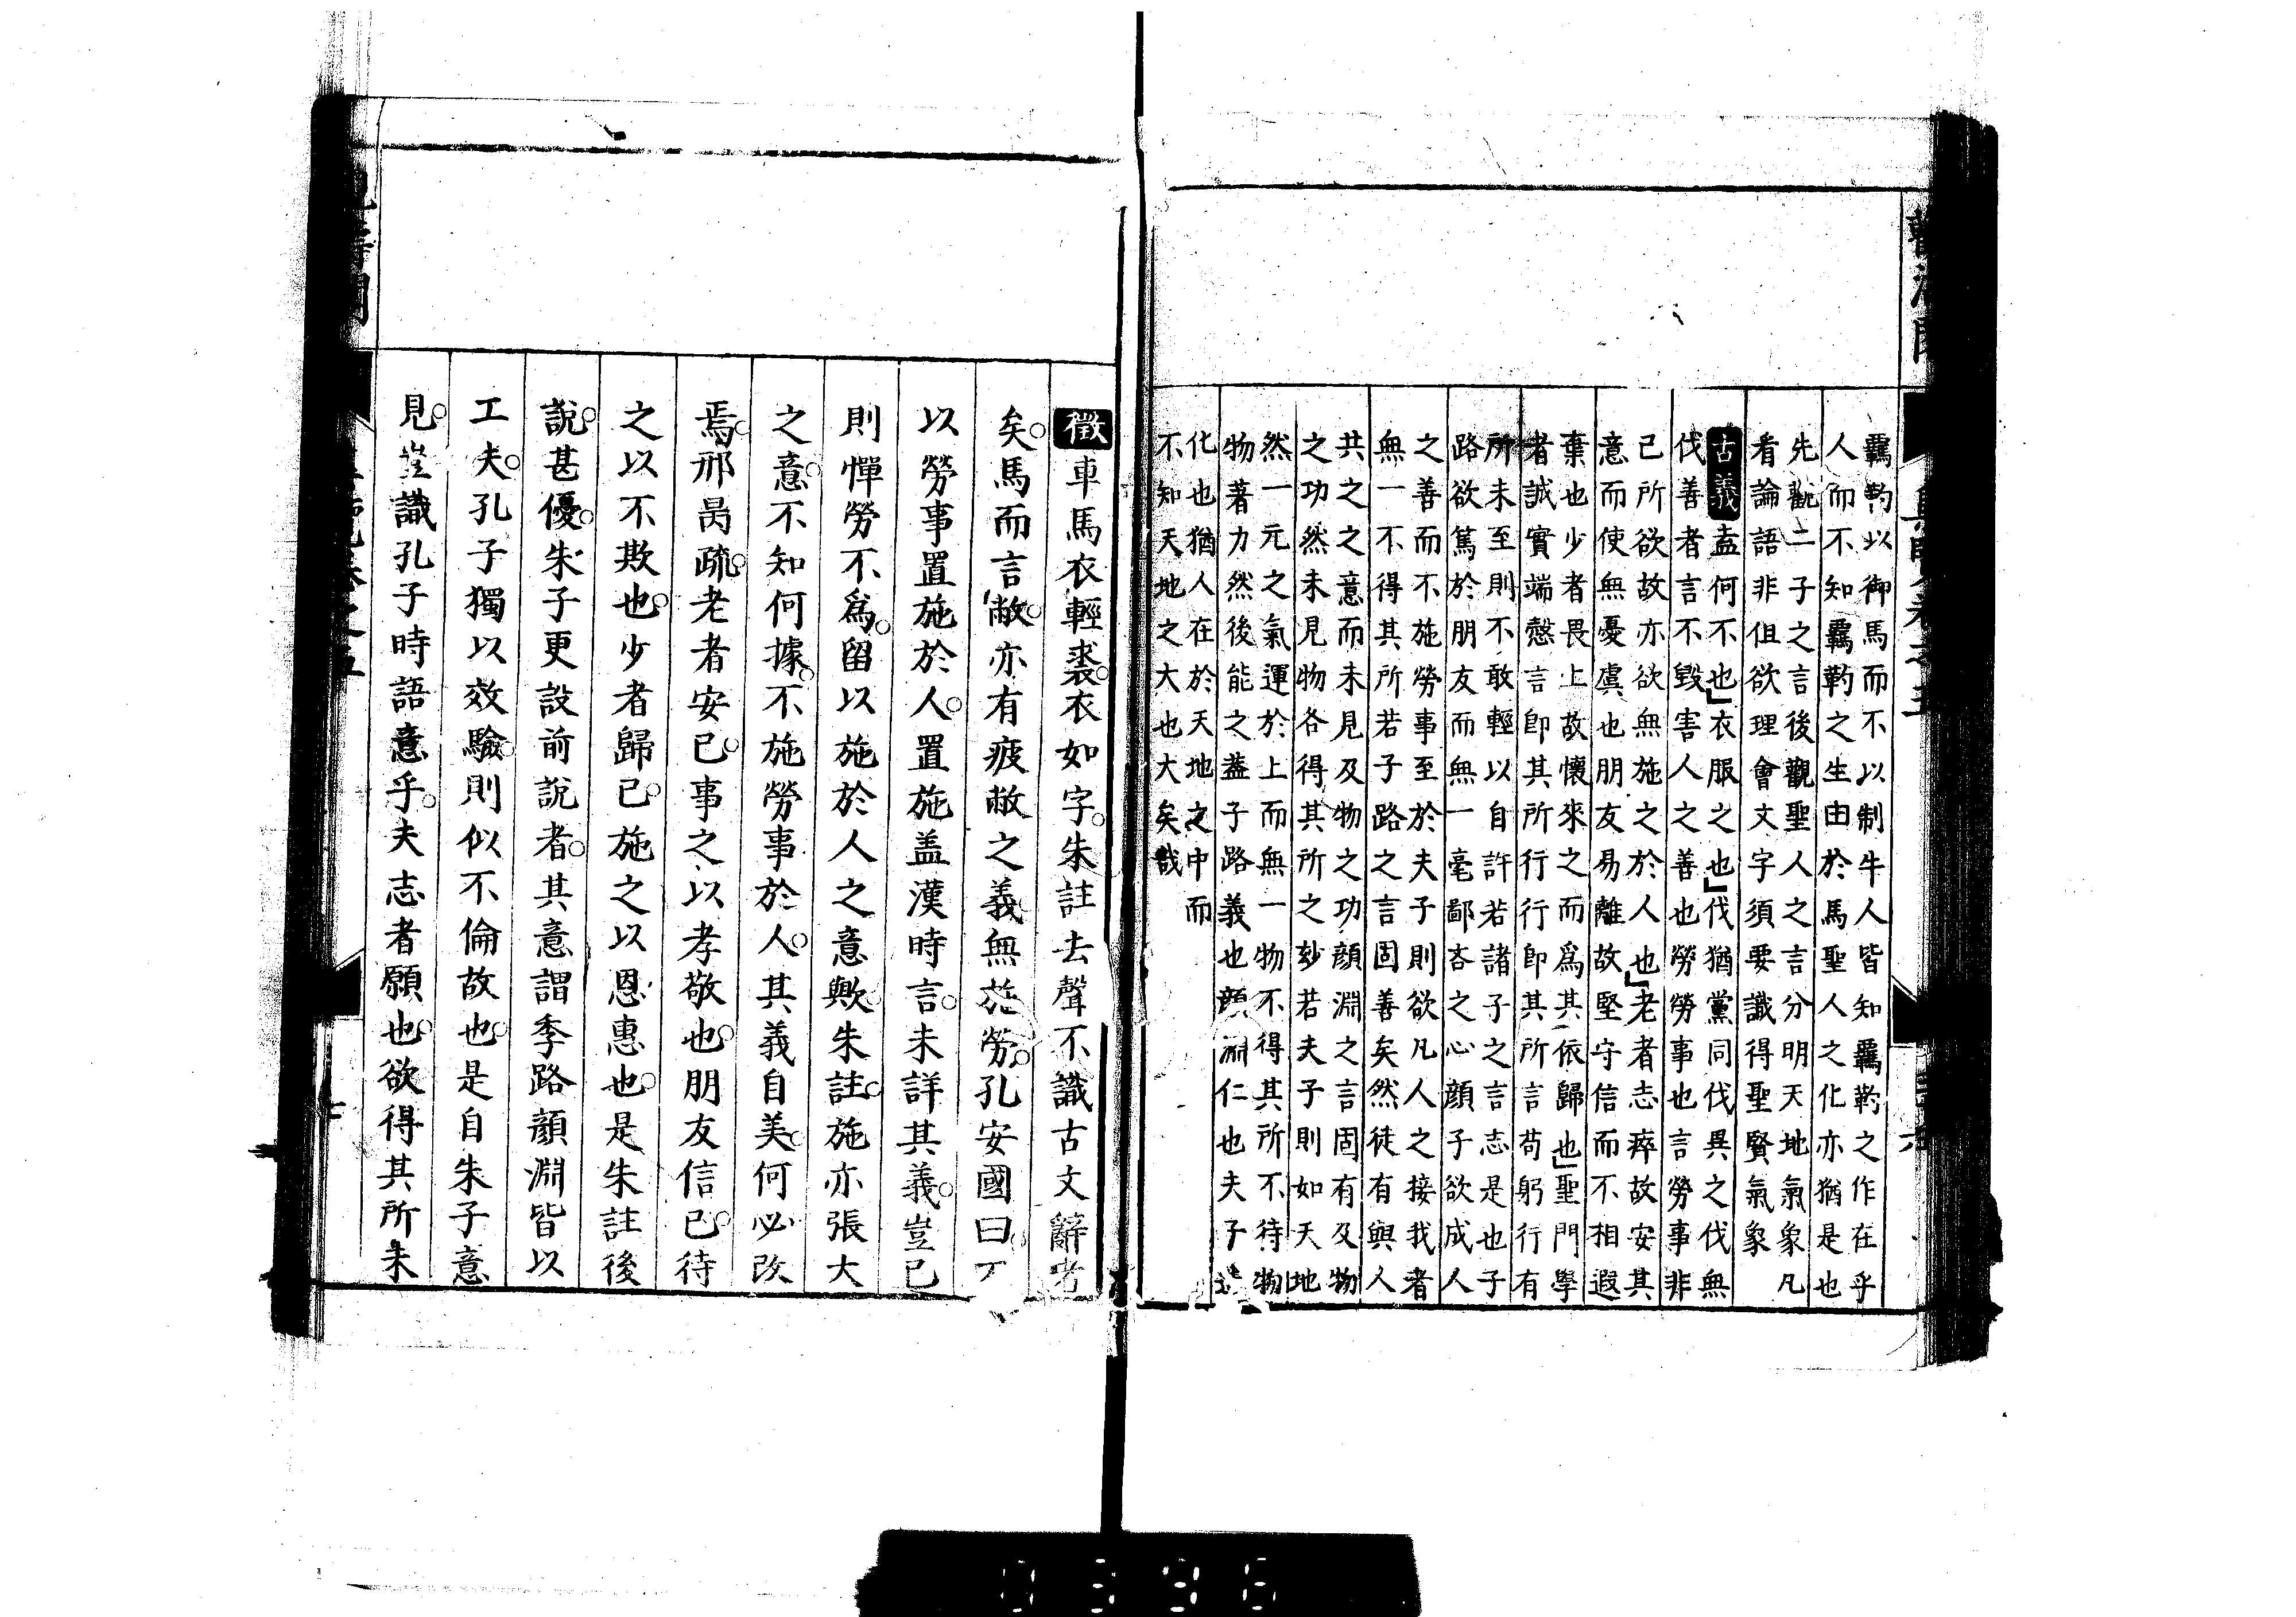 羈靮以御馬而不以制牛人皆知羈靮之作在乎
人而不知羈靮之生由於馬聖人之化亦猶是也
先觀二子之言後觀聖人之言分明天地氣象凡
看論語非但欲理會文字須要識得聖賢氣象
古義盍何不也衣服之也伐猶黨同伐異之伐無
伐善者言不毀害人之善也勞勞事也言勞事非
己所欲故亦欲無施之於人也老者志瘁故安其
意而使無憂虞也朋友易離故堅守信而不相遐
棄也少者畏上故懷來之而爲其依歸也聖門學
者誠實端慤言卽其所行行卽其所言苟躬行有
所未至則不敢輕以自許若諸子之言志是也子
路欲篤於朋友而無一毫鄙吝之心顏子欲成人
之善而不施勞事至於夫子則欲凡人之接我者
無一不得其所若子路之言固善矣然徒有與人
共之之意而未見及物之功顏淵之言固有及物
之功然未見物各得其所之玅若夫子則如天地
然一元之氣運於上而無一物不得其所不待物
物著力然後能之蓋子路義也顏淵仁也夫子
化也猶人在於天地之中而
不知天地之大也大矣哉
徵車馬衣輕裘衣如字朱註去聲不識古文辭者
矣馬而言敝亦有疲敝之義無施勞孔安國曰不
以勞事置施於人置施盖漢時言未詳其義豈已
則憚勞不爲留以施於人之意歟朱註施亦張大
之意不知何據不施勞事於人其義自美何必改
焉邢昺疏老者安已事之以孝敬也朋友信已待
之以不欺也少者歸已施之以恩惠也是朱註後
說甚優朱子更設前說者其意謂季路顏淵皆以
工夫孔子獨以效驗則似不倫故也是自朱子意
見豈識孔子時語意乎夫志者願也欲得其所未
0396